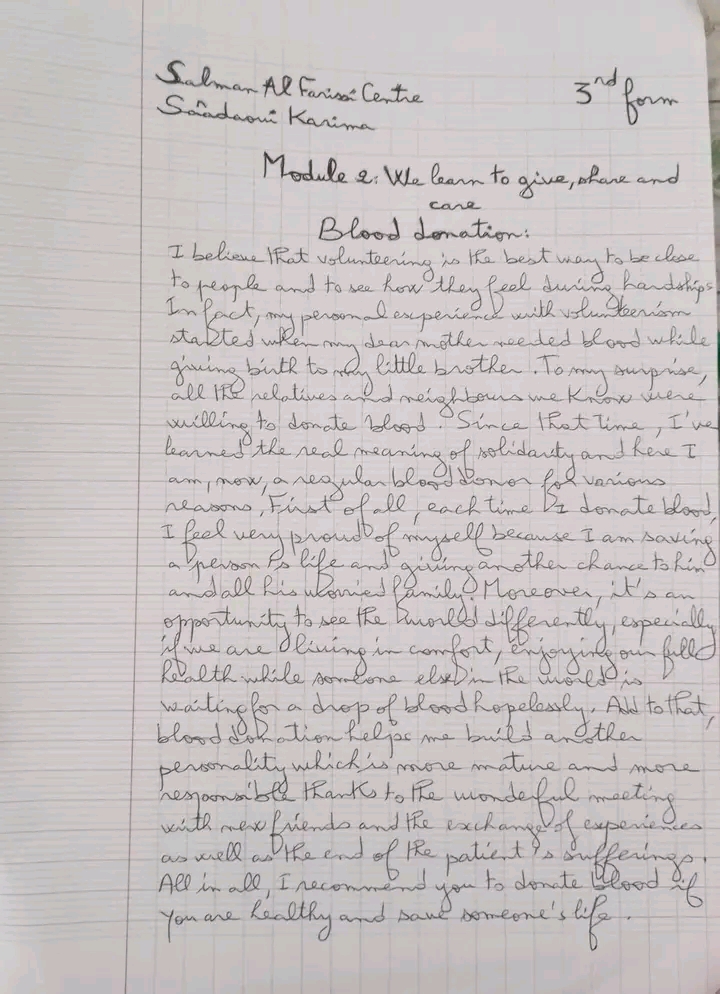 Salman Al Farissi Centre
3rd form
Sâadaoui Karima
Module 2: We learn to give, share and
care
Blood donation:
I believe that volunteering is the best way to be close
to people and to see how they feel during hardships.
In fact, my personal experience with volunteerism
started when my dear mother needed blood while
giving birth to my little brother. To my surprise,
all the relatives and neighbours we know were
willing to donate blood. Since that time, I've
learned the real meaning of solidarity and here I
am, now, a regular blood donor for various
reasons, First of all, each time I donate blood,
I feel very proud of myself because I am saving
a person's life and giving another chance to him
and all his worried family. Moreover, it's an
opportunity to see the world differently, especially
if we are living in comfort, enjoying our full
health while someone else in the world is
waiting for a drop of blood hopelessly. Add to that,
blood donation helps me build another
personality which is more mature and more
responsible thanks to the wonderful meeting
with new friends and the exchange of experiences
as well as the end of the patient's sufferings.
All in all, I recommend you to donate blood if
you are healthy and save someone's life.